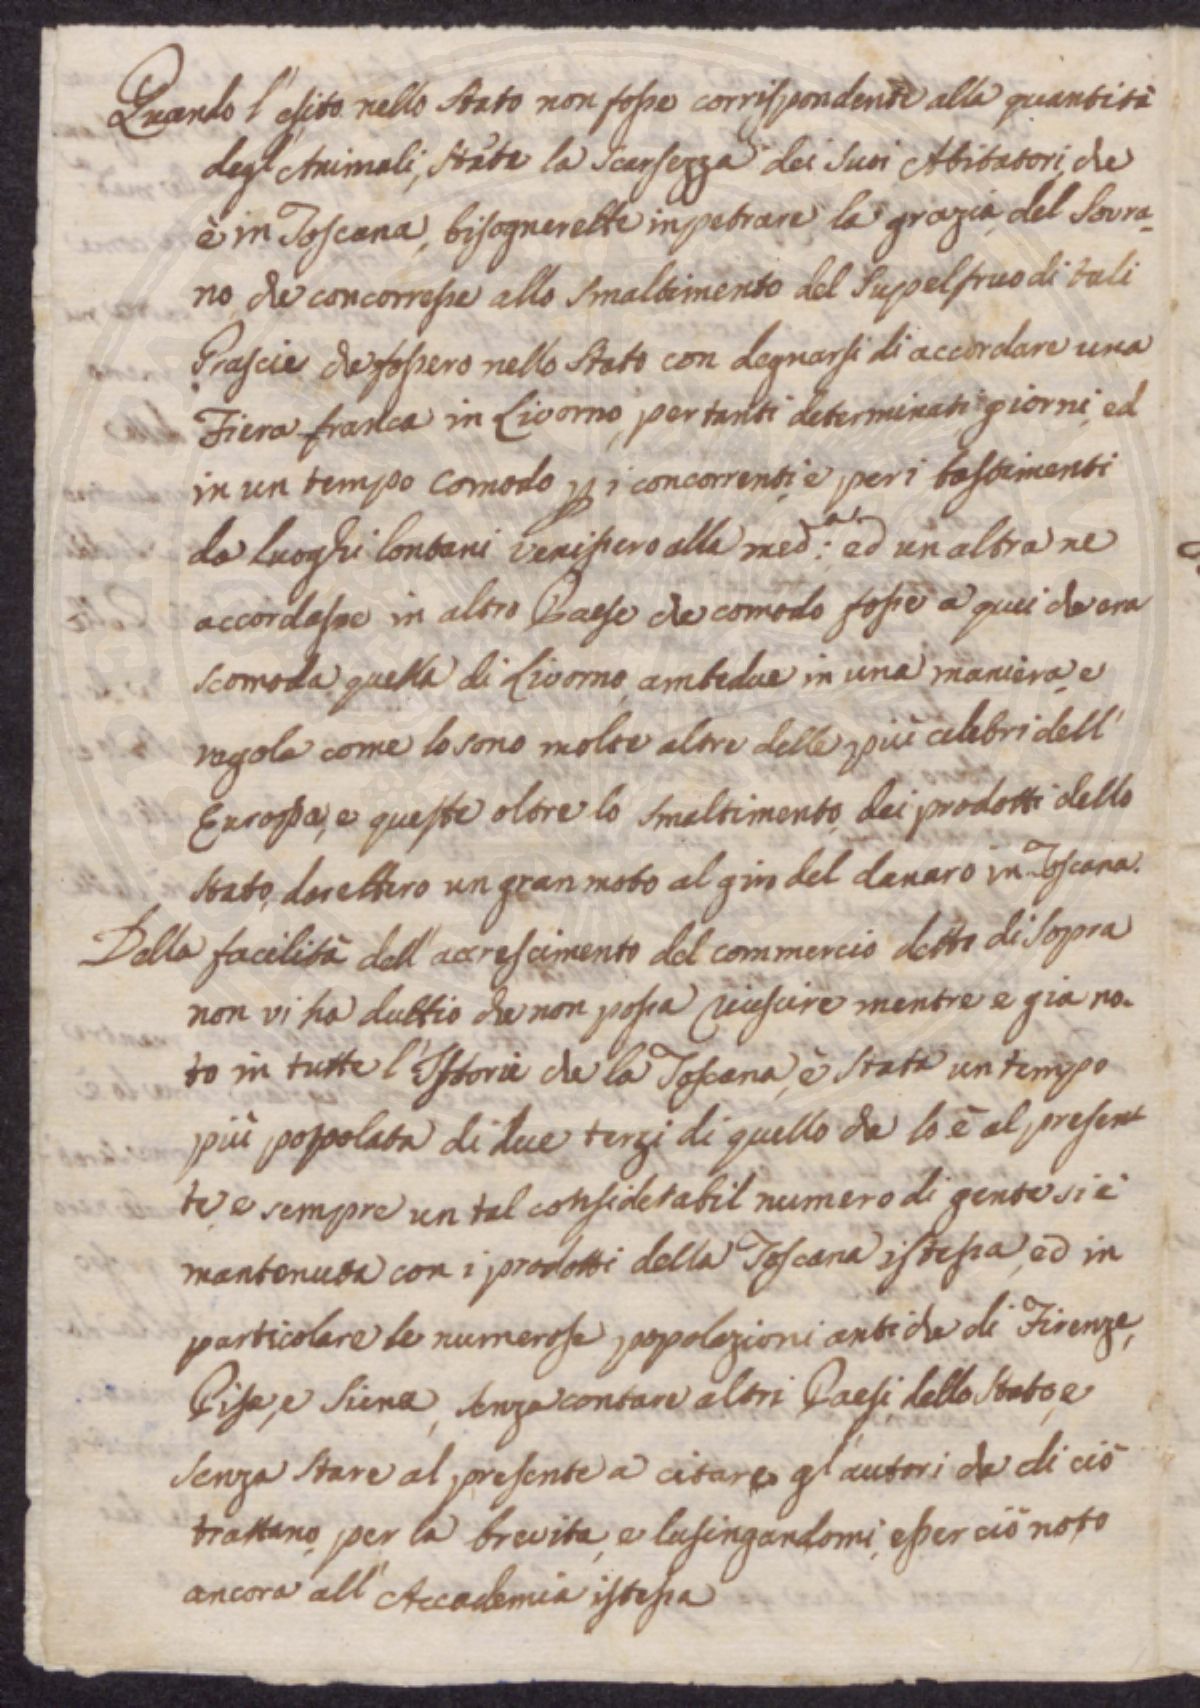 Quando l'esito nello Stato non fosse corrispondente alla quantità
degl'Animali, stàte la scarsezza dei suoi Abitatori, che
è in Toscana, bisognerebbe inpetrare la grazia del Sovra-
no, che concorresse allo smaltimento del Suppelfruo di tali
Grascie che fossero nello Stato con degnarsi di accordare una
Fiera franca in Livorno, per tanti determinati giorni, ed
in un tempo comodo p i concorrenti, e per i bastimenti
da Luoghi lontani venissero alla med:a ed un altra ne
accordasse in altro Paese che comodo fosse a quei che era
scomoda quella di Livorno, ambedue in una maniera, e
regola come lo sono molte altre delle più celebri dell'
Europa, e queste oltre lo smaltimento dei prodotti dello
Stato, darebbero un gran moto al giro del danaro in Toscana.
Della facilità dell'accrescimento del commercio detto di sopra
non vi ha dubbio che non possa riuscire mentre e gia no-
to in tutte l'Istorie che la Toscana, è stata un tempo
più poppolata di due terzi di quello che lo è al presen-
te, e sempre un tal considerabil numero di gente si è
mantenuta con i prodotti della Toscana istessa, ed in
particolare le numerose popolazioni antiche di Firenze,
Pisa, e Siena, senza contare altri Paesi dello Stato, e
senza stare al presente a citare gl'autori che di ciò
trattano, per la brevita, e lusingandomi, esser ciò noto
ancora all'Accademia istessa